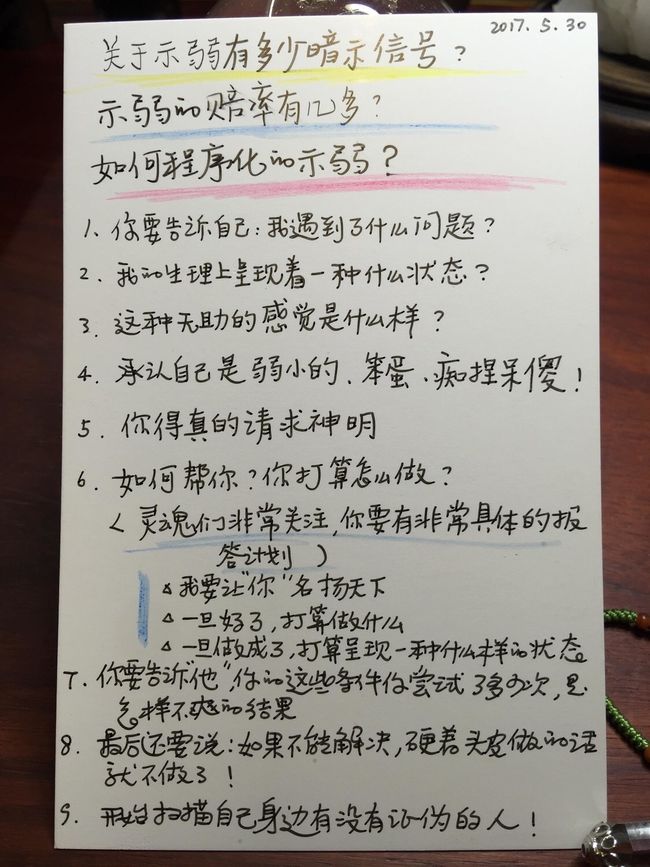 2017.5.30
关于示弱有多少暗示信号？
示弱的赔率有几多？
如何程序化的示弱？
1、你要告诉自己：我遇到了什么问题？
2、我的生理上呈现着一种什么状态？
3、这种无助的感觉是什么样？
4、承认自己是弱小的、笨蛋、痴捏呆傻！
5、你得真的请求神明
6、如何帮你？你打算怎么做？
（灵魂们非常关注，你要有非常具体的报
答计划）
△我要让“你”名扬天下
△一旦好了，打算做什么
△一旦做成了，打算呈现一种什么样的状态
7、你要告诉“他”，你的这些条件你尝试了多少次，是
怎样不爽的结果
8、最后还要说：如果不能解决，硬着头皮做的话
就不做了！
9、开始扫描自己身边有没有证伪的人！